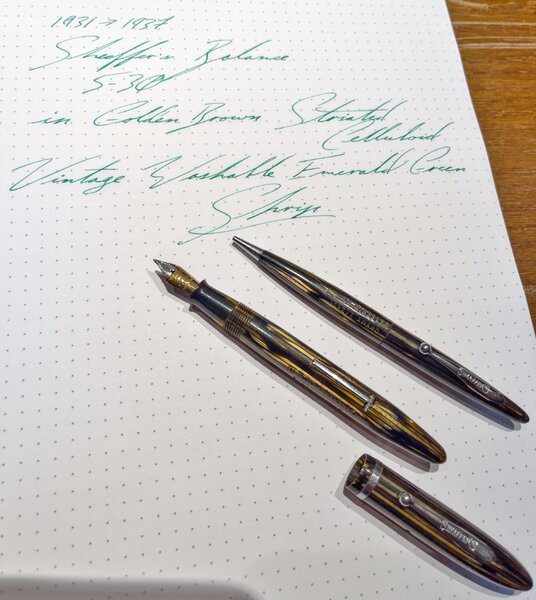 1931 → 1937
Sheaffer's Balance
5-30
in Golden Brown Striated
Celluloid
Vintage Washable Emerald Green
Skrip
SHEAFFER'S
SHEAFFER'S